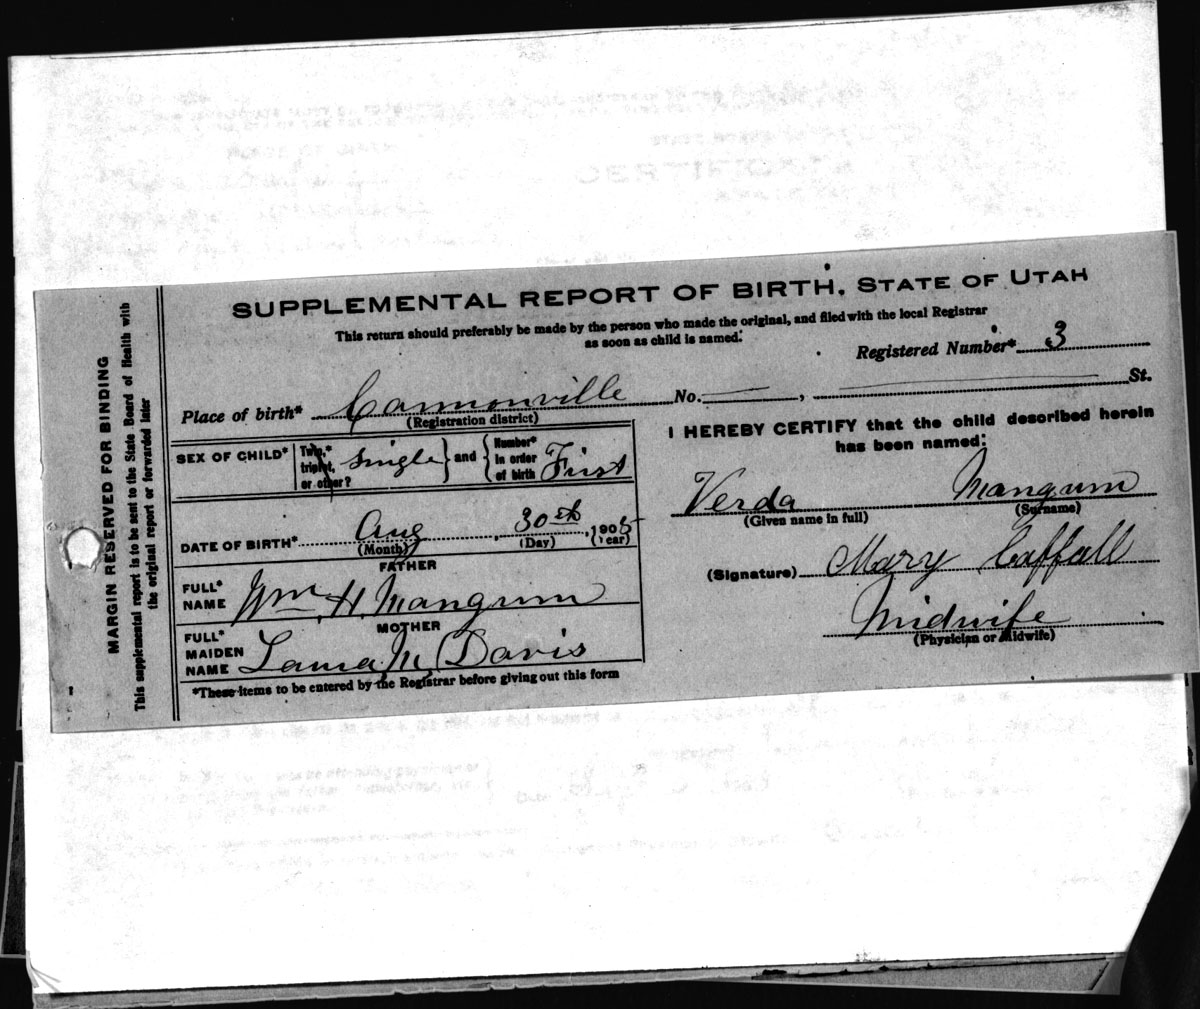 SUPPLEMENTAL REPORT OF BIRTH. STATE OF UTAH
This return should preferably be made by the person who made the original, and filed with the local Registrar
as soon as child is named.
Registered Number* 3
Place of birth* Cannonville No. , St.
(Registration district)
SEX OF CHILD* Twin,* triplet, or other? Single and Number* in order of birth First
DATE OF BIRTH* Aug , 30th , 1905
(Month) (Day) (Year)
FATHER
FULL* NAME Wm. H. Mangum
MOTHER
FULL* MAIDEN NAME Laura M. Davis
*These items to be entered by the Registrar before giving out this form
I HEREBY CERTIFY that the child described herein
has been named:
Verda Mangum
(Given name in full) (Surname)
(Signature) Mary Caffall
Midwife
(Physician or Midwife)
MARGIN RESERVED FOR BINDING
This supplemental report is to be sent to the State Board of Health with
the original report or forwarded later